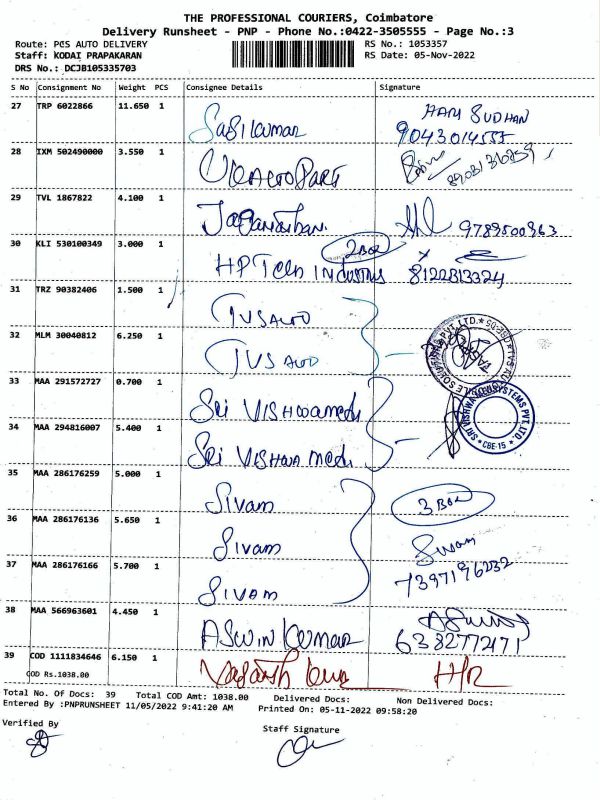 THE PROFESSIONAL COURIERS, Coimbatore
Delivery Runsheet - PNP - Phone No.:0422-3505555 - Page No.:3
Route: PCS AUTO DELIVERY RS No.: 1053357
Staff: KODAI PRAPAKARAN RS Date: 05-Nov-2022
DRS No.: DCJB105335703
S No Consignment No Weight PCS Consignee Details Signature
27 TRP 6022866 11.650 1 Sasikumar HARI SUDHAN
9043014555
28 IXM 502490000 3.550 1 AUTO PARTS
29 TVL 1867822 4.100 1 9789500963
30 KLI 530100349 3.000 1 HP Tech Industries 2 Box 8122813324
31 TRZ 90382406 1.500 1 TVS AUTO
32 MLM 30040812 6.250 1 TVS AUTO
33 MAA 291572727 0.700 1 Sri VISHWA Medi
34 MAA 294816007 5.400 1 Sri VISHWA Medi
SRI VISHWA SYSTEMS PVT. LTD. * CBE-15 *
35 MAA 286176259 5.000 1 Sivam 3 Box
36 MAA 286176136 5.650 1 Sivam Sivam
37 MAA 286176166 5.700 1 SIVAM 7397196232
38 MAA 566963601 4.450 1 ASWIN KUMAR 6382772171
39 COD 1111834646 6.150 1
COD Rs.1038.00
Total No. Of Docs: 39 Total COD Amt: 1038.00 Delivered Docs: Non Delivered Docs:
Entered By :PNPRUNSHEET 11/05/2022 9:41:20 AM Printed On: 05-11-2022 09:58:20
Verified By
Staff Signature